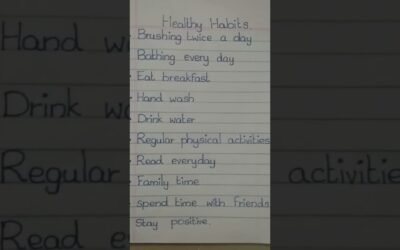 Healthy Habits.
· Brushing twice a day
· Bathing every day
· Eat breakfast
· Hand wash
· Drink water
· Regular physical activities
· Read everyday
· Family time
· spend time with friends
· Stay positive.
Hand w
Drink wa
Regular
activitie
Read e